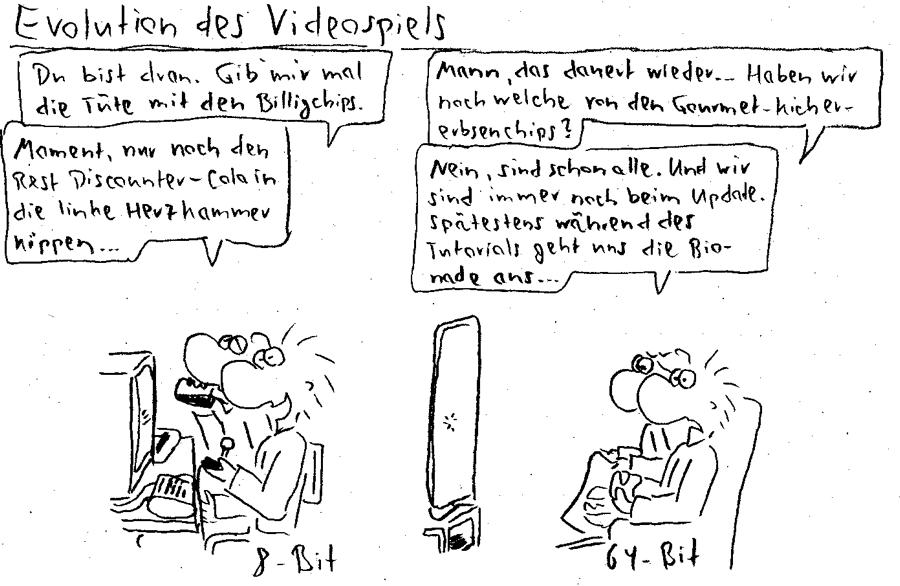 Evolution des Videospiels
Du bist dran. Gib mir mal
die Tüte mit den Billigchips.
Moment, nur noch den
Rest Discounter-Cola in
die linke Herzkammer
kippen...
Mann, das dauert wieder... Haben wir
noch welche von den Gourmet-Kicher-
erbsenchips?
Nein, sind schon alle. Und wir
sind immer noch beim Update.
Spätestens während des
Tutorials geht uns die Bio-
nade aus...
8-Bit
64-Bit